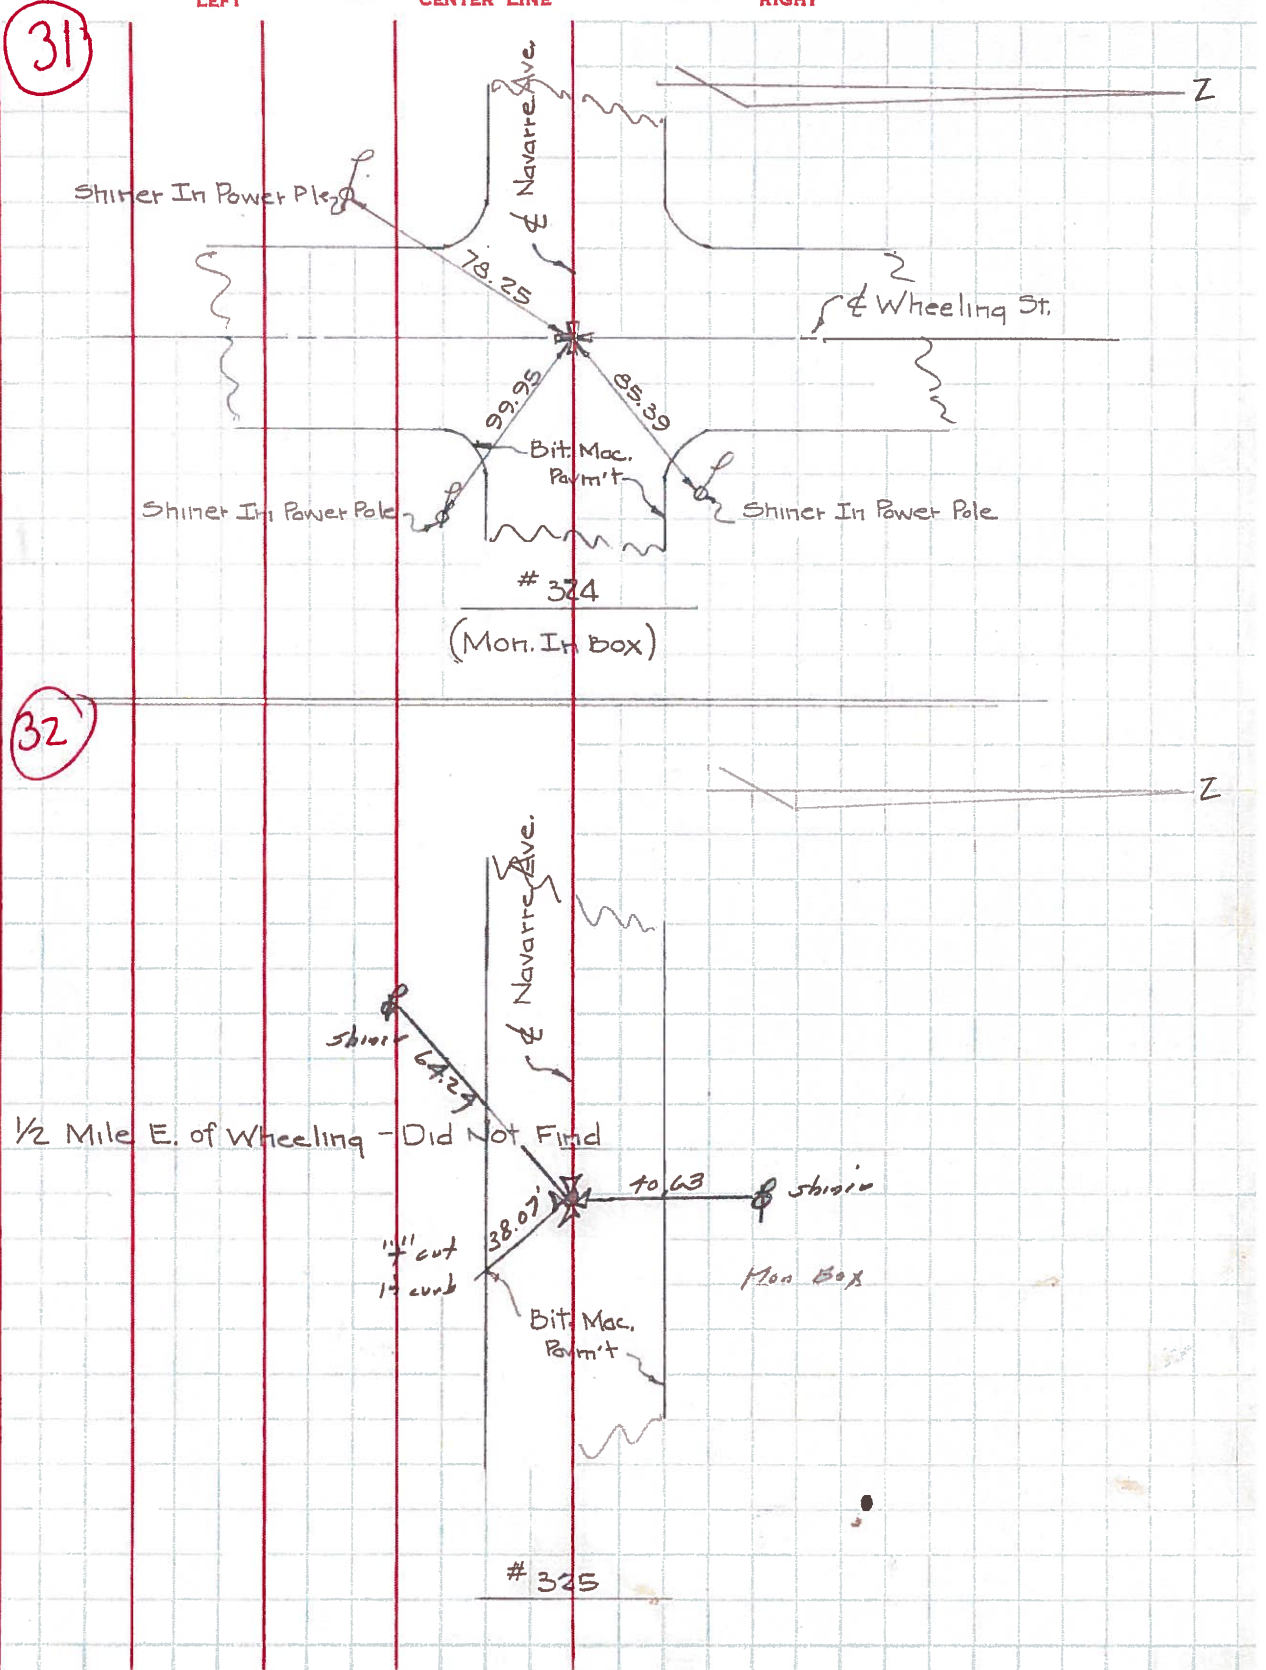 LEFT CENTER LINE RIGHT
31
℄ Navarre Ave.
Z
Shiner In Power Ple
78.25
℄ Wheeling St.
99.95
85.39
Bit. Mac.
Pavm't
Shiner In Power Pole
Shiner In Power Pole
# 324
(Mon. In Box)
32
Z
℄ Navarre Ave.
shiner
64.29
1/2 Mile E. of Wheeling - Did Not Find
40.63
shiner
38.07'
"+" cut
in curb
Mon Box
Bit. Mac.
Pavm't
# 325